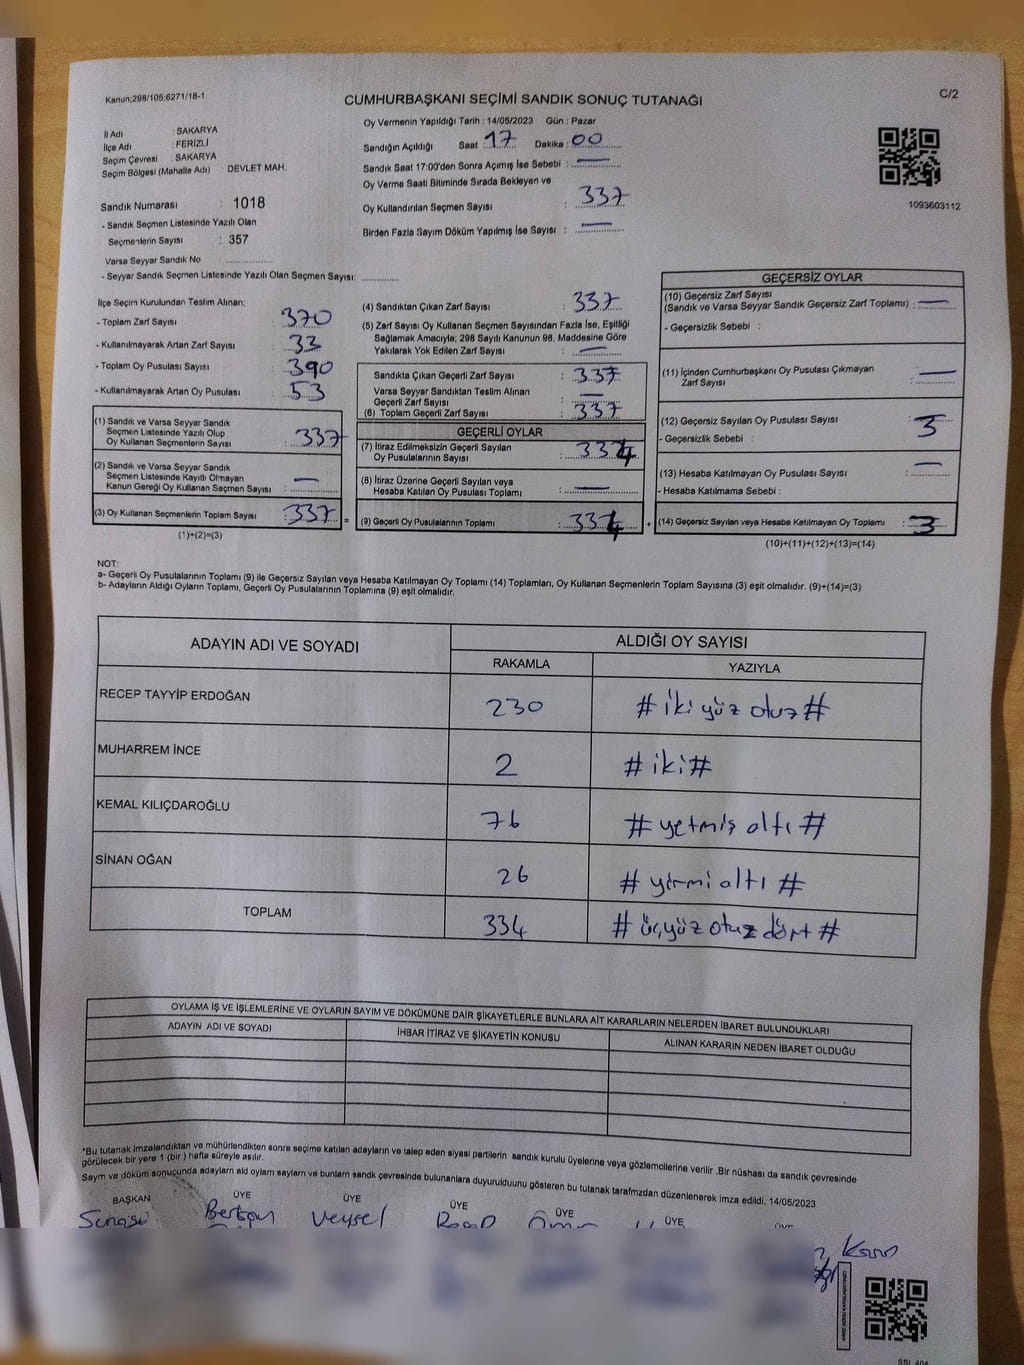 Kanun;298/105;6271/18-1
C/2
CUMHURBAŞKANI SEÇİMİ SANDIK SONUÇ TUTANAĞI
İl Adı : SAKARYA
İlçe Adı : FERİZLİ
Seçim Çevresi : SAKARYA
Seçim Bölgesi (Mahalle Adı) : DEVLET MAH.
Sandık Numarası : 1018
- Sandık Seçmen Listesinde Yazılı Olan
Seçmenlerin Sayısı : 357
Varsa Seyyar Sandık No :
- Seyyar Sandık Seçmen Listesinde Yazılı Olan Seçmen Sayısı:
Oy Vermenin Yapıldığı Tarih : 14/05/2023 Gün : Pazar
Sandığın Açıldığı Saat : 17 Dakika : 00
Sandık Saat 17:00'den Sonra Açımış İse Sebebi : —
Oy Verme Saati Bitiminde Sırada Bekleyen ve
Oy Kullandırılan Seçmen Sayısı : 337
Birden Fazla Sayım Döküm Yapılmış İse Sayısı : —
1093603112
İlçe Seçim Kurulundan Teslim Alınan;
- Toplam Zarf Sayısı : 370
- Kullanılmayarak Artan Zarf Sayısı : 33
- Toplam Oy Pusulası Sayısı : 390
- Kullanılmayarak Artan Oy Pusulası : 53
(1) Sandık ve Varsa Seyyar Sandık
Seçmen Listesinde Yazılı Olup
Oy Kullanan Seçmenlerin Sayısı : 337
(2) Sandık ve Varsa Seyyar Sandık
Seçmen Listesinde Kayıtlı Olmayan
Kanun Gereği Oy Kullanan Seçmen Sayısı : —
(3) Oy Kullanan Seçmenlerin Toplam Sayısı : 337 =
(1)+(2)=(3)
(4) Sandıktan Çıkan Zarf Sayısı : 337
(5) Zarf Sayısı Oy Kullanan Seçmen Sayısından Fazla İse, Eşitliği
Sağlamak Amacıyla; 298 Sayılı Kanunun 98. Maddesine Göre
Yakılarak Yok Edilen Zarf Sayısı : —
Sandıkta Çıkan Geçerli Zarf Sayısı : 337
Varsa Seyyar Sandıktan Teslim Alınan
Geçerli Zarf Sayısı : —
(6) Toplam Geçerli Zarf Sayısı : 337
GEÇERLİ OYLAR
(7) İtiraz Edilmeksizin Geçerli Sayılan
Oy Pusulalarının Sayısı : 334
(8) İtiraz Üzerine Geçerli Sayılan veya
Hesaba Katılan Oy Pusulası Toplamı : —
(9) Geçerli Oy Pusulalarının Toplamı : 334 +
GEÇERSİZ OYLAR
(10) Geçersiz Zarf Sayısı
(Sandık ve Varsa Seyyar Sandık Geçersiz Zarf Toplamı) : —
- Geçersizlik Sebebi :
(11) İçinden Cumhurbaşkanı Oy Pusulası Çıkmayan
Zarf Sayısı : —
(12) Geçersiz Sayılan Oy Pusulası Sayısı : 3
- Geçersizlik Sebebi :
(13) Hesaba Katılmayan Oy Pusulası Sayısı : —
- Hesaba Katılmama Sebebi :
(14) Geçersiz Sayılan veya Hesaba Katılmayan Oy Toplamı : 3
(10)+(11)+(12)+(13)=(14)
NOT:
a- Geçerli Oy Pusulalarının Toplamı (9) ile Geçersiz Sayılan veya Hesaba Katılmayan Oy Toplamı (14) Toplamları, Oy Kullanan Seçmenlerin Toplam Sayısına (3) eşit olmalıdır. (9)+(14)=(3)
b- Adayların Aldığı Oyların Toplamı, Geçerli Oy Pusulalarının Toplamına (9) eşit olmalıdır.
ADAYIN ADI VE SOYADI
ALDIĞI OY SAYISI
RAKAMLA YAZIYLA
RECEP TAYYİP ERDOĞAN 230 # iki yüz otuz #
MUHARREM İNCE 2 # iki #
KEMAL KILIÇDAROĞLU 76 # yetmiş altı #
SİNAN OĞAN 26 # yirmi altı #
TOPLAM 334 # üçyüz otuz dört #
OYLAMA İŞ VE İŞLEMLERİNE VE OYLARIN SAYIM VE DÖKÜMÜNE DAİR ŞİKAYETLERLE BUNLARA AİT KARARLARIN NELERDEN İBARET BULUNDUKLARI
ADAYIN ADI VE SOYADI İHBAR İTİRAZ VE ŞİKAYETİN KONUSU ALINAN KARARIN NEDEN İBARET OLDUĞU
*Bu tutanak imzalandıktan ve mühürlendikten sonra seçime katılan adayların ve talep eden siyasi partilerin sandık kurulu üyelerine veya gözlemcilerine verilir .Bir nüshası da sandık çevresinde
görülecek bir yere 1 (bir ) hafta süreyle asılır.
Sayım ve döküm sonucunda adayların ald oyların sayların ve bunların sandk çevresinde bulunanlara duyurulduunu gösteren bu tutanak tarafmzdan düzenlenerek imza edildi. 14/05/2023
BAŞKAN ÜYE ÜYE ÜYE ÜYE ÜYE
Veysel